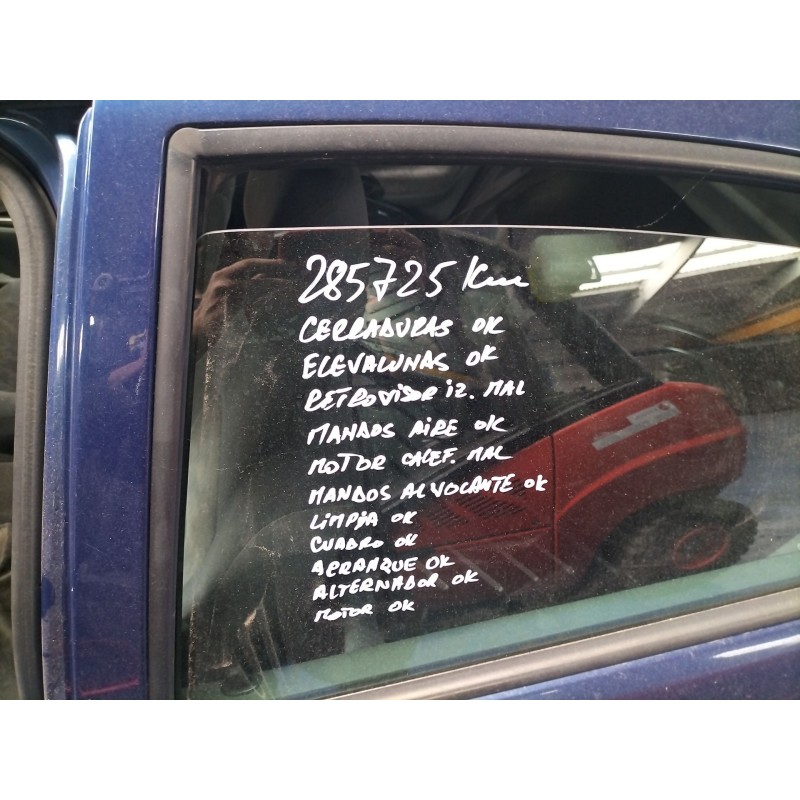 285725 Km
CERRADURAS OK
ELEVALUNAS OK
RETROVISOR iZ. MAL
MANDOS AIRE OK
MOTOR CALEF. MAL
MANDOS AL VOLANTE OK
LIMPIA OK
CUADRO OK
ARRANQUE OK
ALTERNADOR OK
MOTOR OK